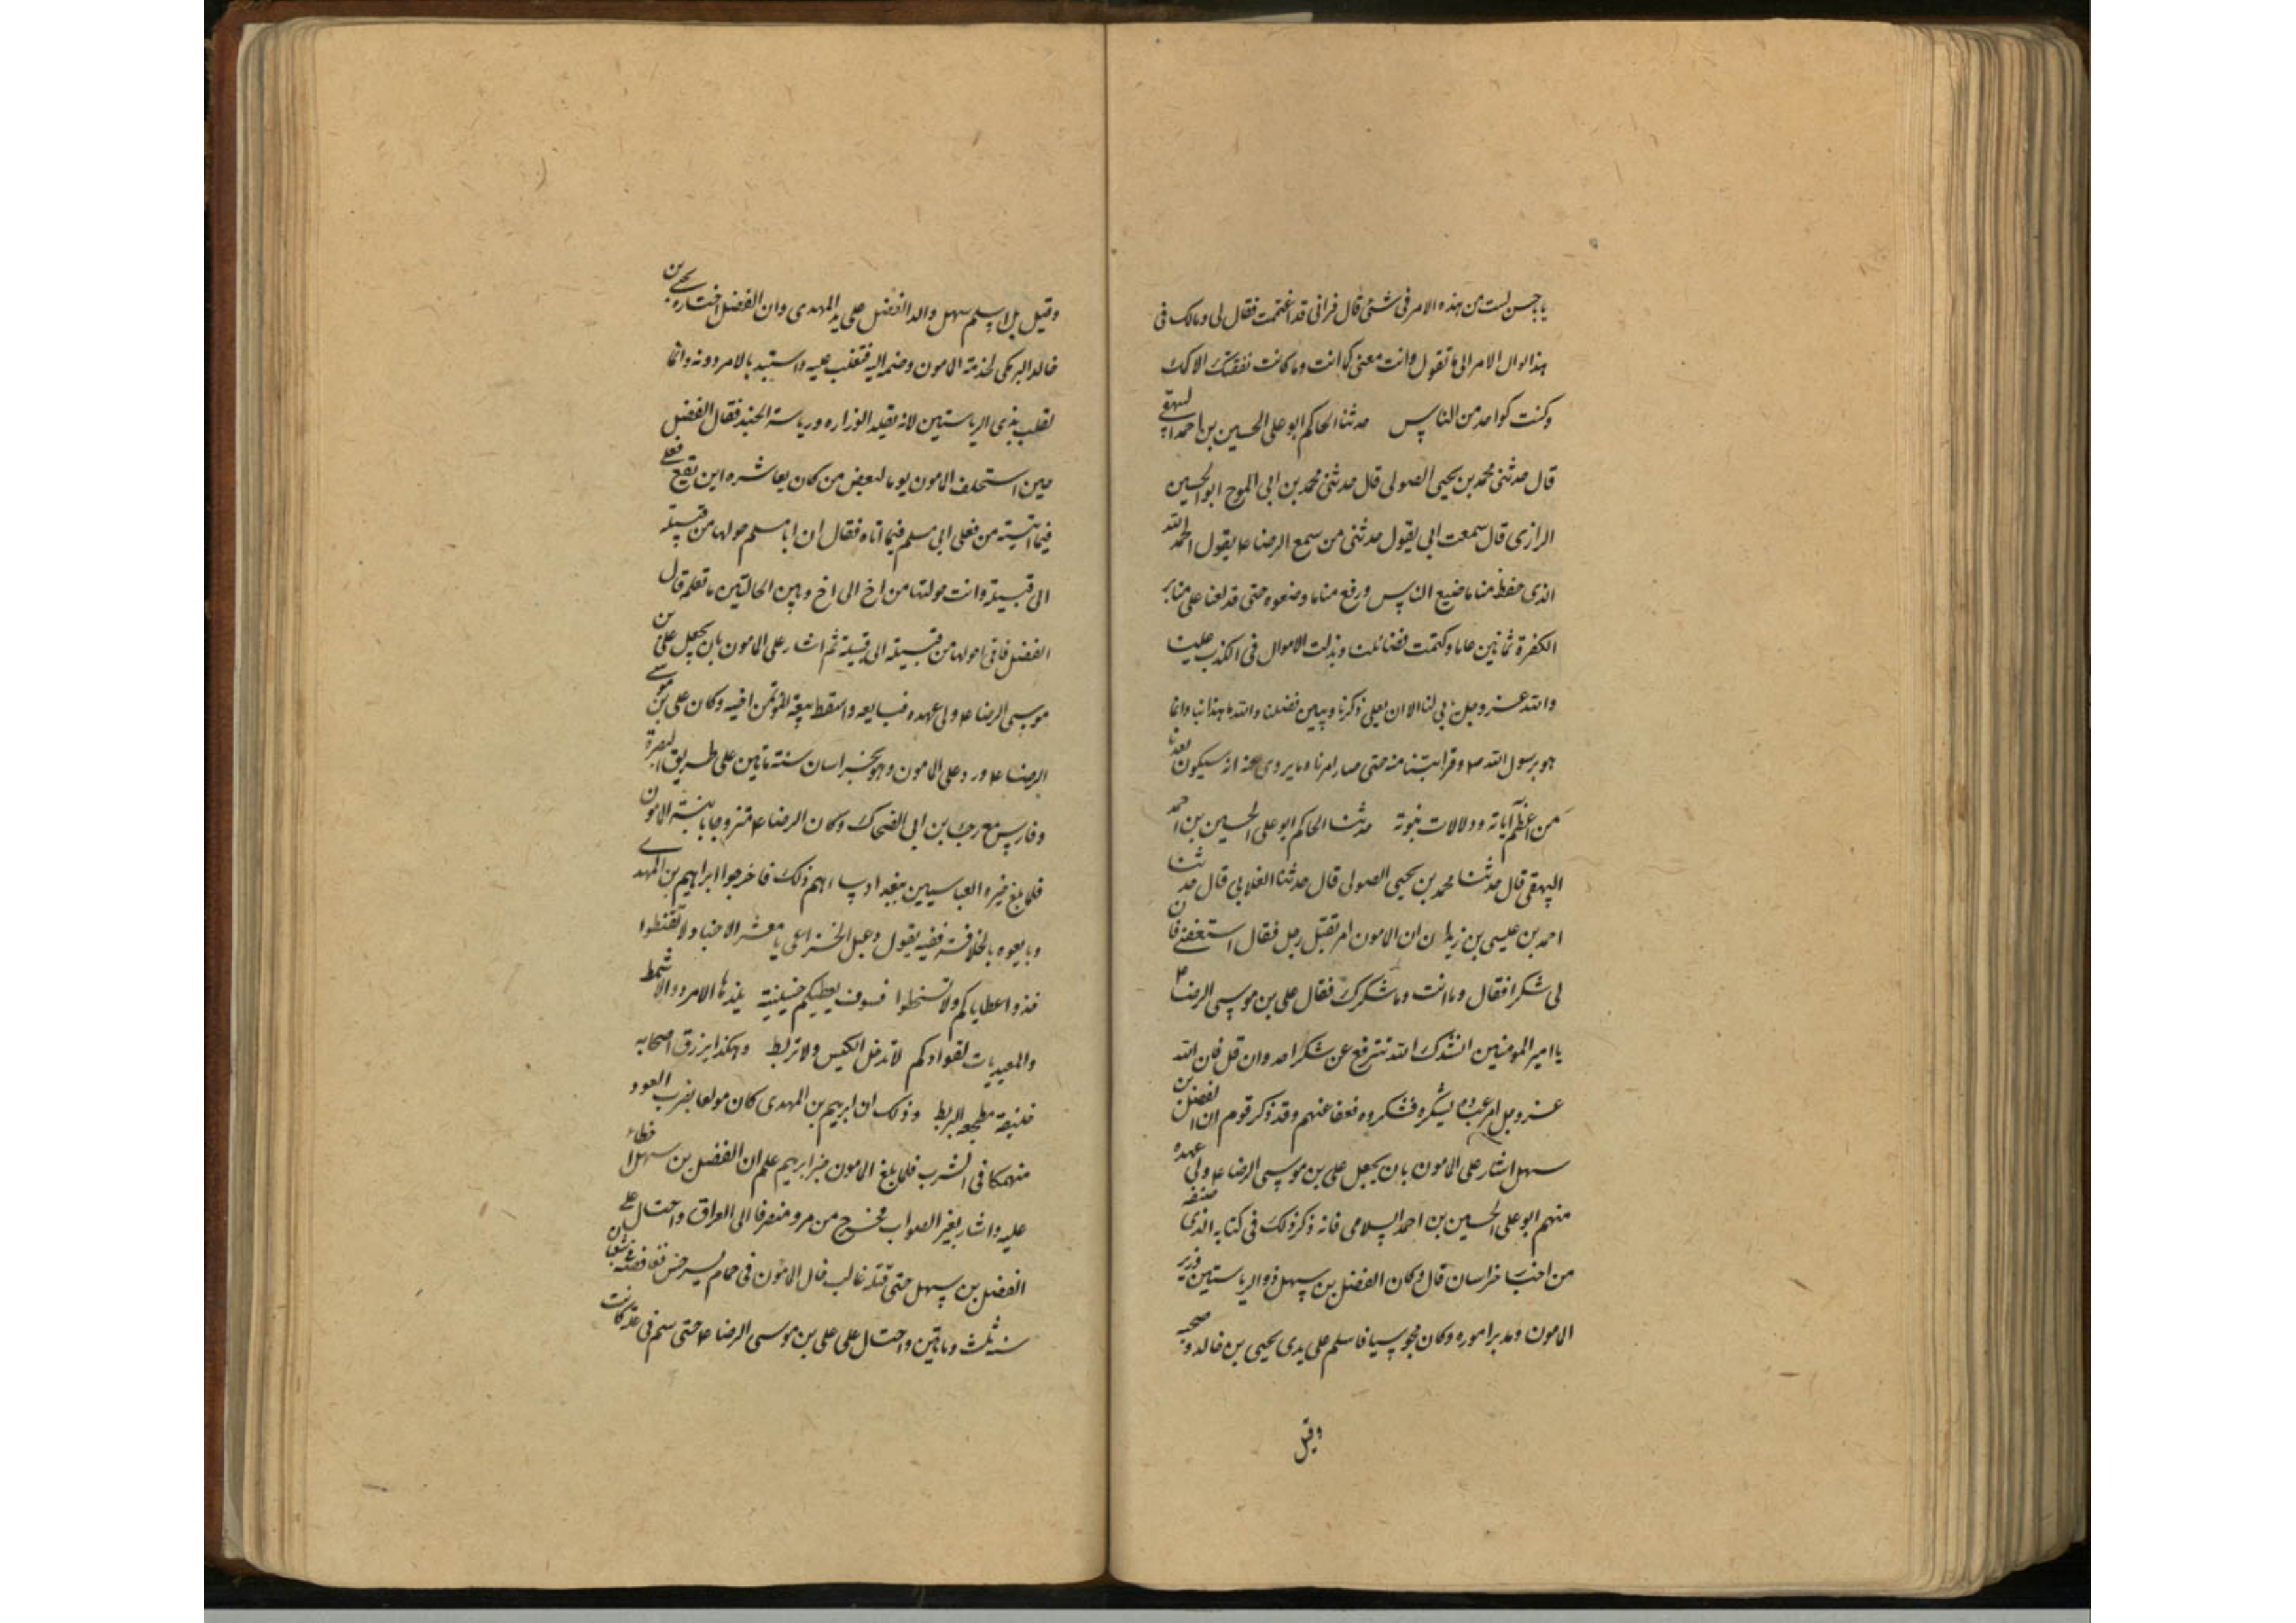 يا با حسن لست من هذه الامر فى شئ قال فرانى قد اغتممت فقال لى ومالك فى
هذا لو ال الامر الى ما تقول وانت معنى كما انت وما كانت نفقتك الا كمك
وكنت كواحد من الناس حدثنا الحاكم ابو على الحسين بن احمد البيهقى
قال حدثنى محمد بن يحيى الصولى قال حدثنى محمد بن ابى الموج ابو الحسين
الرازى قال سمعت ابى يقول حدثنى من سمع الرضا ع يقول الحمد لله
الذى حفظ منا ما ضيع الناس ورفع منا ما وضعوه حتى قد لعنا على منابر
الكفرة ثمانين عاما وكتمت فضائلنا وبذلت الاموال فى الكذب علينا
والله عز وجل يابى لنا الا ان يعلى ذكرنا ويبين فضلنا والله ما هذا بنا وانما
هو برسول الله ص وقرابتنا منه حتى صار امرنا وما يروى عنه انه سيكون بعدنا
من اعظم آياته ودلالات نبوته حدثنا الحاكم ابو على الحسين بن احمد
البيهقى قال حدثنا محمد بن يحيى الصولى قال حدثنا الغلابى قال حدثنا
احمد بن عيسى بن زيد ان المامون امر بقتل رجل فقال استبقنى فان
لى شكرا فقال وما انت وما شكرك فقال على بن موسى الرضا ع
يا امير المومنين انشدك الله تترفع عن شكر احد وان قل فان الله
عز وجل امر عباده بشكره فشكروه فعفا عنهم وقد ذكر قوم ان الفضل بن
سهل اشار على المامون بان يجعل على بن موسى الرضا ع ولى عهده
منهم ابو على الحسين بن احمد السلامى فانه ذكر ذلك فى كتابه الذى صنفه
من اخبار خراسان قال وكان الفضل بن سهل ذو الرياستين وزير
المامون ومدبر اموره وكان مجوسيا فاسلم على يدى يحيى بن خالد وصحبه
وقيل
وقيل بل اسلم سهل والد الفضل على يد المهدى وان الفضل اختاره يحيى بن
خالد البرمكى لخدمة المامون وضمه اليه فتغلب عليه واستبد بالامر دونه وانما
لقب بذى الرياستين لانه تقلد الوزاره ورياسة الجند فقال الفضل
حين استخلف المامون يوما لبعض من كان يعاشره اين تقع فعلى
فيما اتيته من فعل ابى مسلم فيما اتاه فقال ان ابا مسلم حولها من قبيلة
الى قبيلة وانت حولتها من اخ الى اخ وبين الحالتين ما تعلم قال
الفضل فانى احولها من قبيلة الى قبيلة ثم اشار على المامون بان يجعل على بن
موسى الرضا ع ولى عهده فبايعه واسقط بيعة المؤتمن اخيه وكان على بن موسى
الرضا ع ورد على المامون وهو بخراسان سنة مائتين على طريق البصرة
وفارس مع رجاء بن ابى الضحاك وكان الرضا ع متزوجا بابنة المامون
فلما بلغ خبره العباسيين ببغداد ساءهم ذلك فاخرجوا ابراهيم بن المهدى
وبايعوه بالخلافة ففيه يقول دعبل الخزاعى يا معشر الاجناد لا تقنطوا
خذوا عطاياكم ولا تسخطوا فسوف يعطيكم حنينية يلذها الامرد والاشمط
والمعبديات لقوادكم لا تدخل الكيس ولا تربط وهكذا يرزق اصحابه
خليفة مصحفه البربط وذلك ان ابرهيم بن المهدى كان مولعا بضرب العود
منهمكا فى الشرب فلما بلغ المامون خبر ابرهيم علم ان الفضل بن سهل اخطاء
عليه واشار بغير الصواب فخرج من مرو منصرفا الى العراق واحتال على
الفضل بن سهل حتى قتله غالب خال المامون فى حمام بسرخس مغافصة فى شعبان
سنه ثلث ومائتين واحتال على على بن موسى الرضا ع حتى سم فى علة كانت